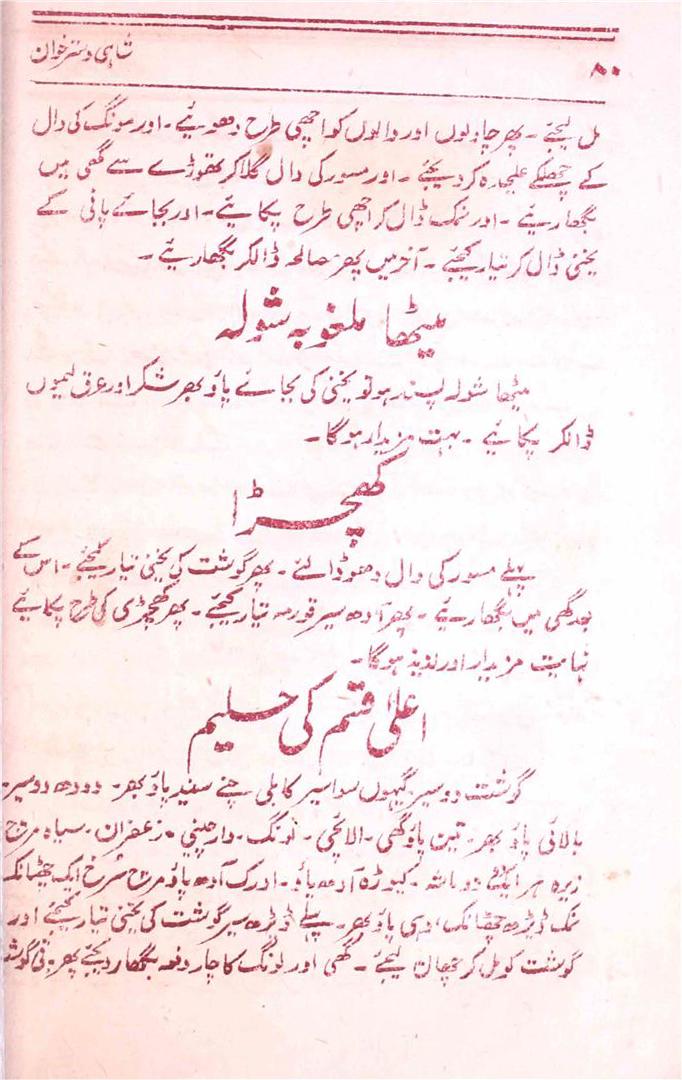 شاہی دسترخوان
۸۰
مل لیجئے۔ پھر چاولوں اور دالوں کو اچھی طرح دھوئیے۔ اور مونگ کی دال
کے چھلکے علیحدہ کر دیجئے۔ اور مسور کی دال گلا کر تھوڑے سے گھی میں
بگھاریئے۔ اور نمک ڈال کر اچھی طرح پکایئے۔ اور بجائے پانی کے
یخنی ڈال کر تیار کیجئے۔ آخر میں پھر مصالحہ ڈالکر بگھاریئے۔
میٹھا ملغوبہ شولہ
میٹھا شولہ پسند ہو تو یخنی کی بجائے پاؤ بھر شکر اور عرق لیموں
ڈالکر پکائیے۔ بہت مزیدار ہوگا۔
کھچڑا
پہلے مسور کی دال دھو ڈالئے۔ پھر گوشت کی یخنی تیار کیجئے۔ اس کے
بعد گھی میں بگھاریئے۔ پھر آدھ سیر قورمہ تیار کیجئے۔ پھر کھچڑی کی طرح پکائیے
نہایت مزیدار اور لذیذ ہوگا۔
اعلیٰ قسم کی حلیم
گوشت دو سیر۔ گیہوں سوا سیر کابلی چنے سفید پاؤ بھر۔ دودھ دو سیر۔
بالائی پاؤ بھر۔ تین پاؤ گھی۔ الائچی۔ لونگ۔ دارچینی۔ زعفران۔ سیاہ مرچ
زیرہ ہر ایک دو ماشہ۔ کیوڑہ آدھ پاؤ۔ ادرک آدھ پاؤ مرچ سُرخ ایک چھٹانک
نمک ڈیڑھ چھٹانک، دہی پاؤ بھر۔ پہلے ڈیڑھ سیر گوشت کی یخنی تیار کیجئے اور
گوشت کو مل کر چھان لیجئے۔ گھی اور لونگ کا چار دفعہ بگھار دیجئے پھر بقی